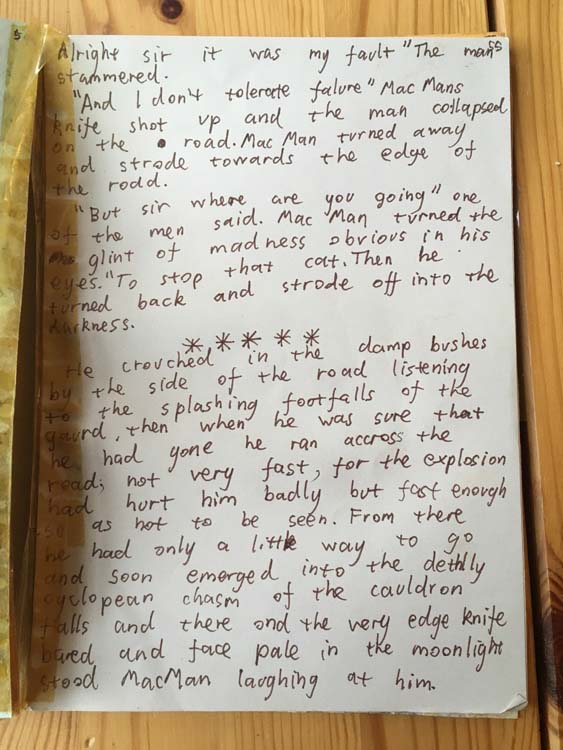 Alright sir it was my fault "The man
stammered.
"And I don't tolerate falure" Mac Mans
knife shot up and the man collapsed
on the road. Mac Man turned away
and strode towards the edge of
the rodd.
"But sir where are you going" one
of the men said. Mac Man turned the
glint of madness obvious in his
eyes. "To stop that cat. Then he
turned back and strode off into the
darkness.
*****
He crouched in the damp bushes
by the side of the road listening
to the splashing footfalls of the
gaurd, then when he was sure that
he had gone he ran accross the
road; not very fast, for the explosion
had hurt him badly but fast enough
so as not to be seen. From there
he had only a little way to go
and soon emerged into the dethly
cyclopean chasm of the cauldron
falls and there ond the very edge knife
bared and face pale in the moonlight
stood MacMan laughing at him.